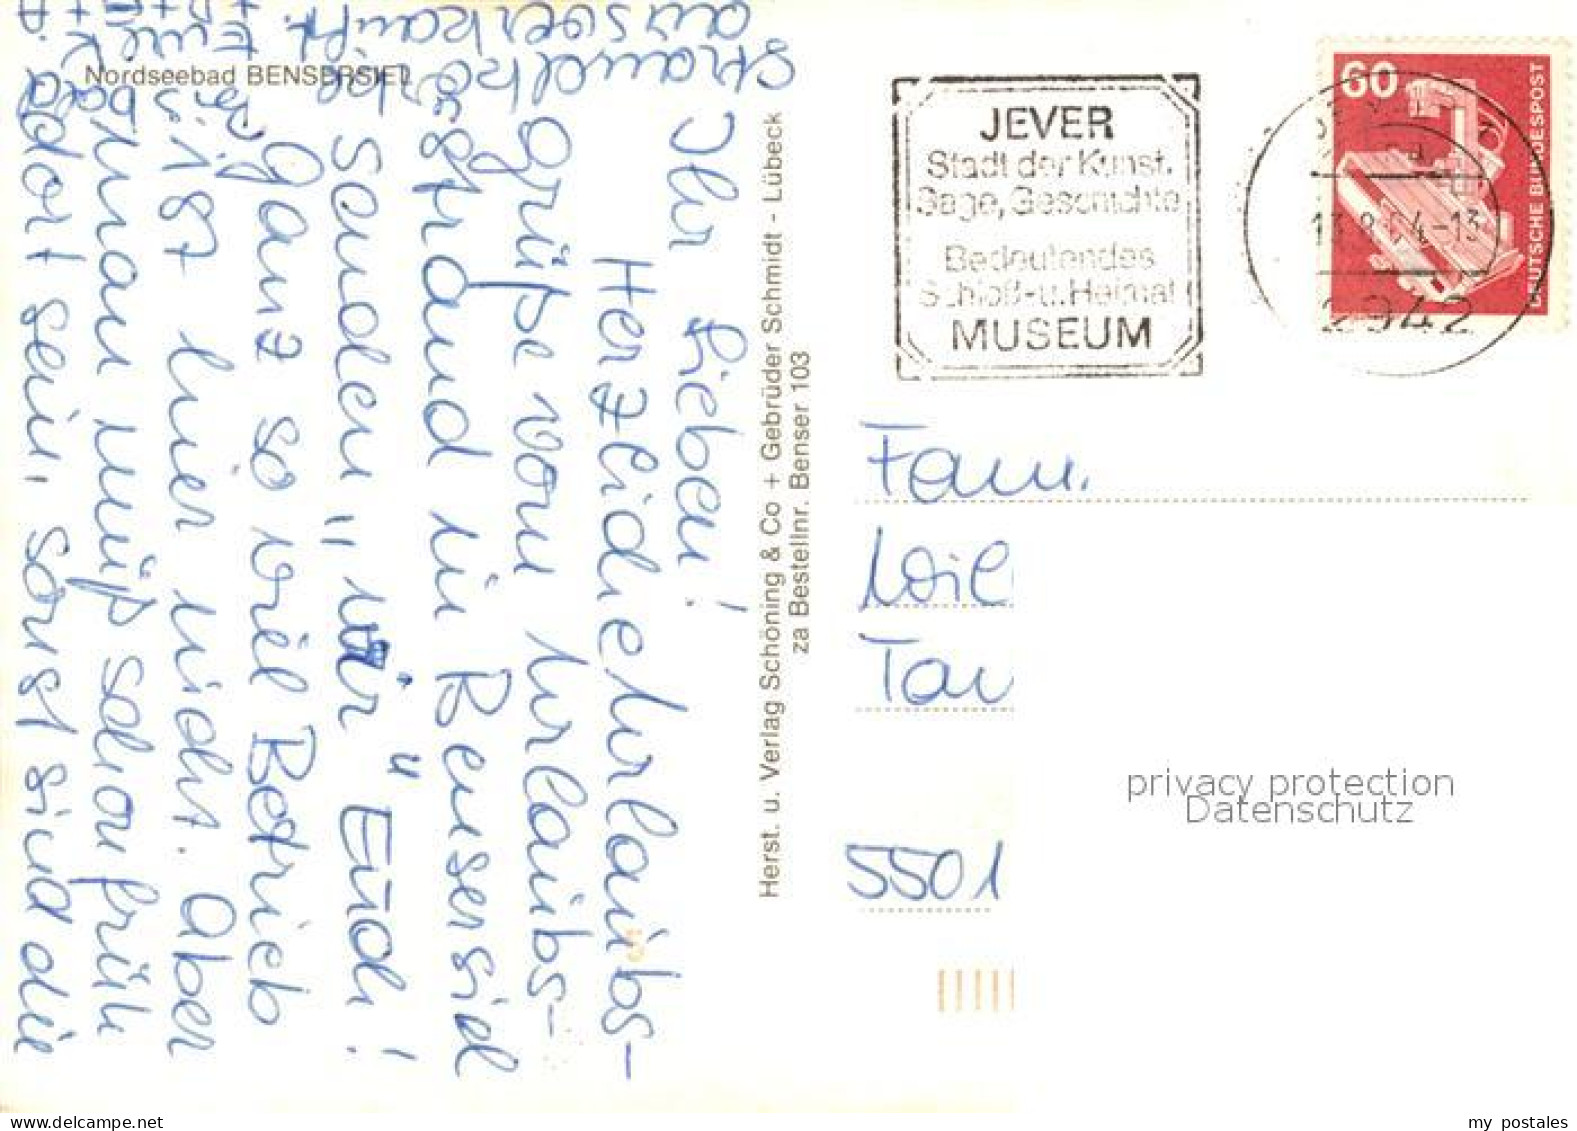 Nordseebad BENSERSIEL
Ihr Lieben!
Herzliche Urlaubs-
grüße vom Urlaubs-
strand in Bensersiel
senden "wir" Euch!
Ganz so viel Betrieb
ist hier nicht. Aber
man muß schon früh
dort sein, sonst sind die
Strandkörbe
ausverkauft.
Herst. u. Verlag Schöning & Co + Gebrüder Schmidt - Lübeck
za Bestellnr. Benser 103
JEVER
Stadt der Kunst,
Sage, Geschichte
Bedeutendes
Schloß-u. Heimat
MUSEUM
60
DEUTSCHE BUNDESPOST
2942
Fam.
Wil
Tan
5501
privacy protection
Datenschutz
my postales